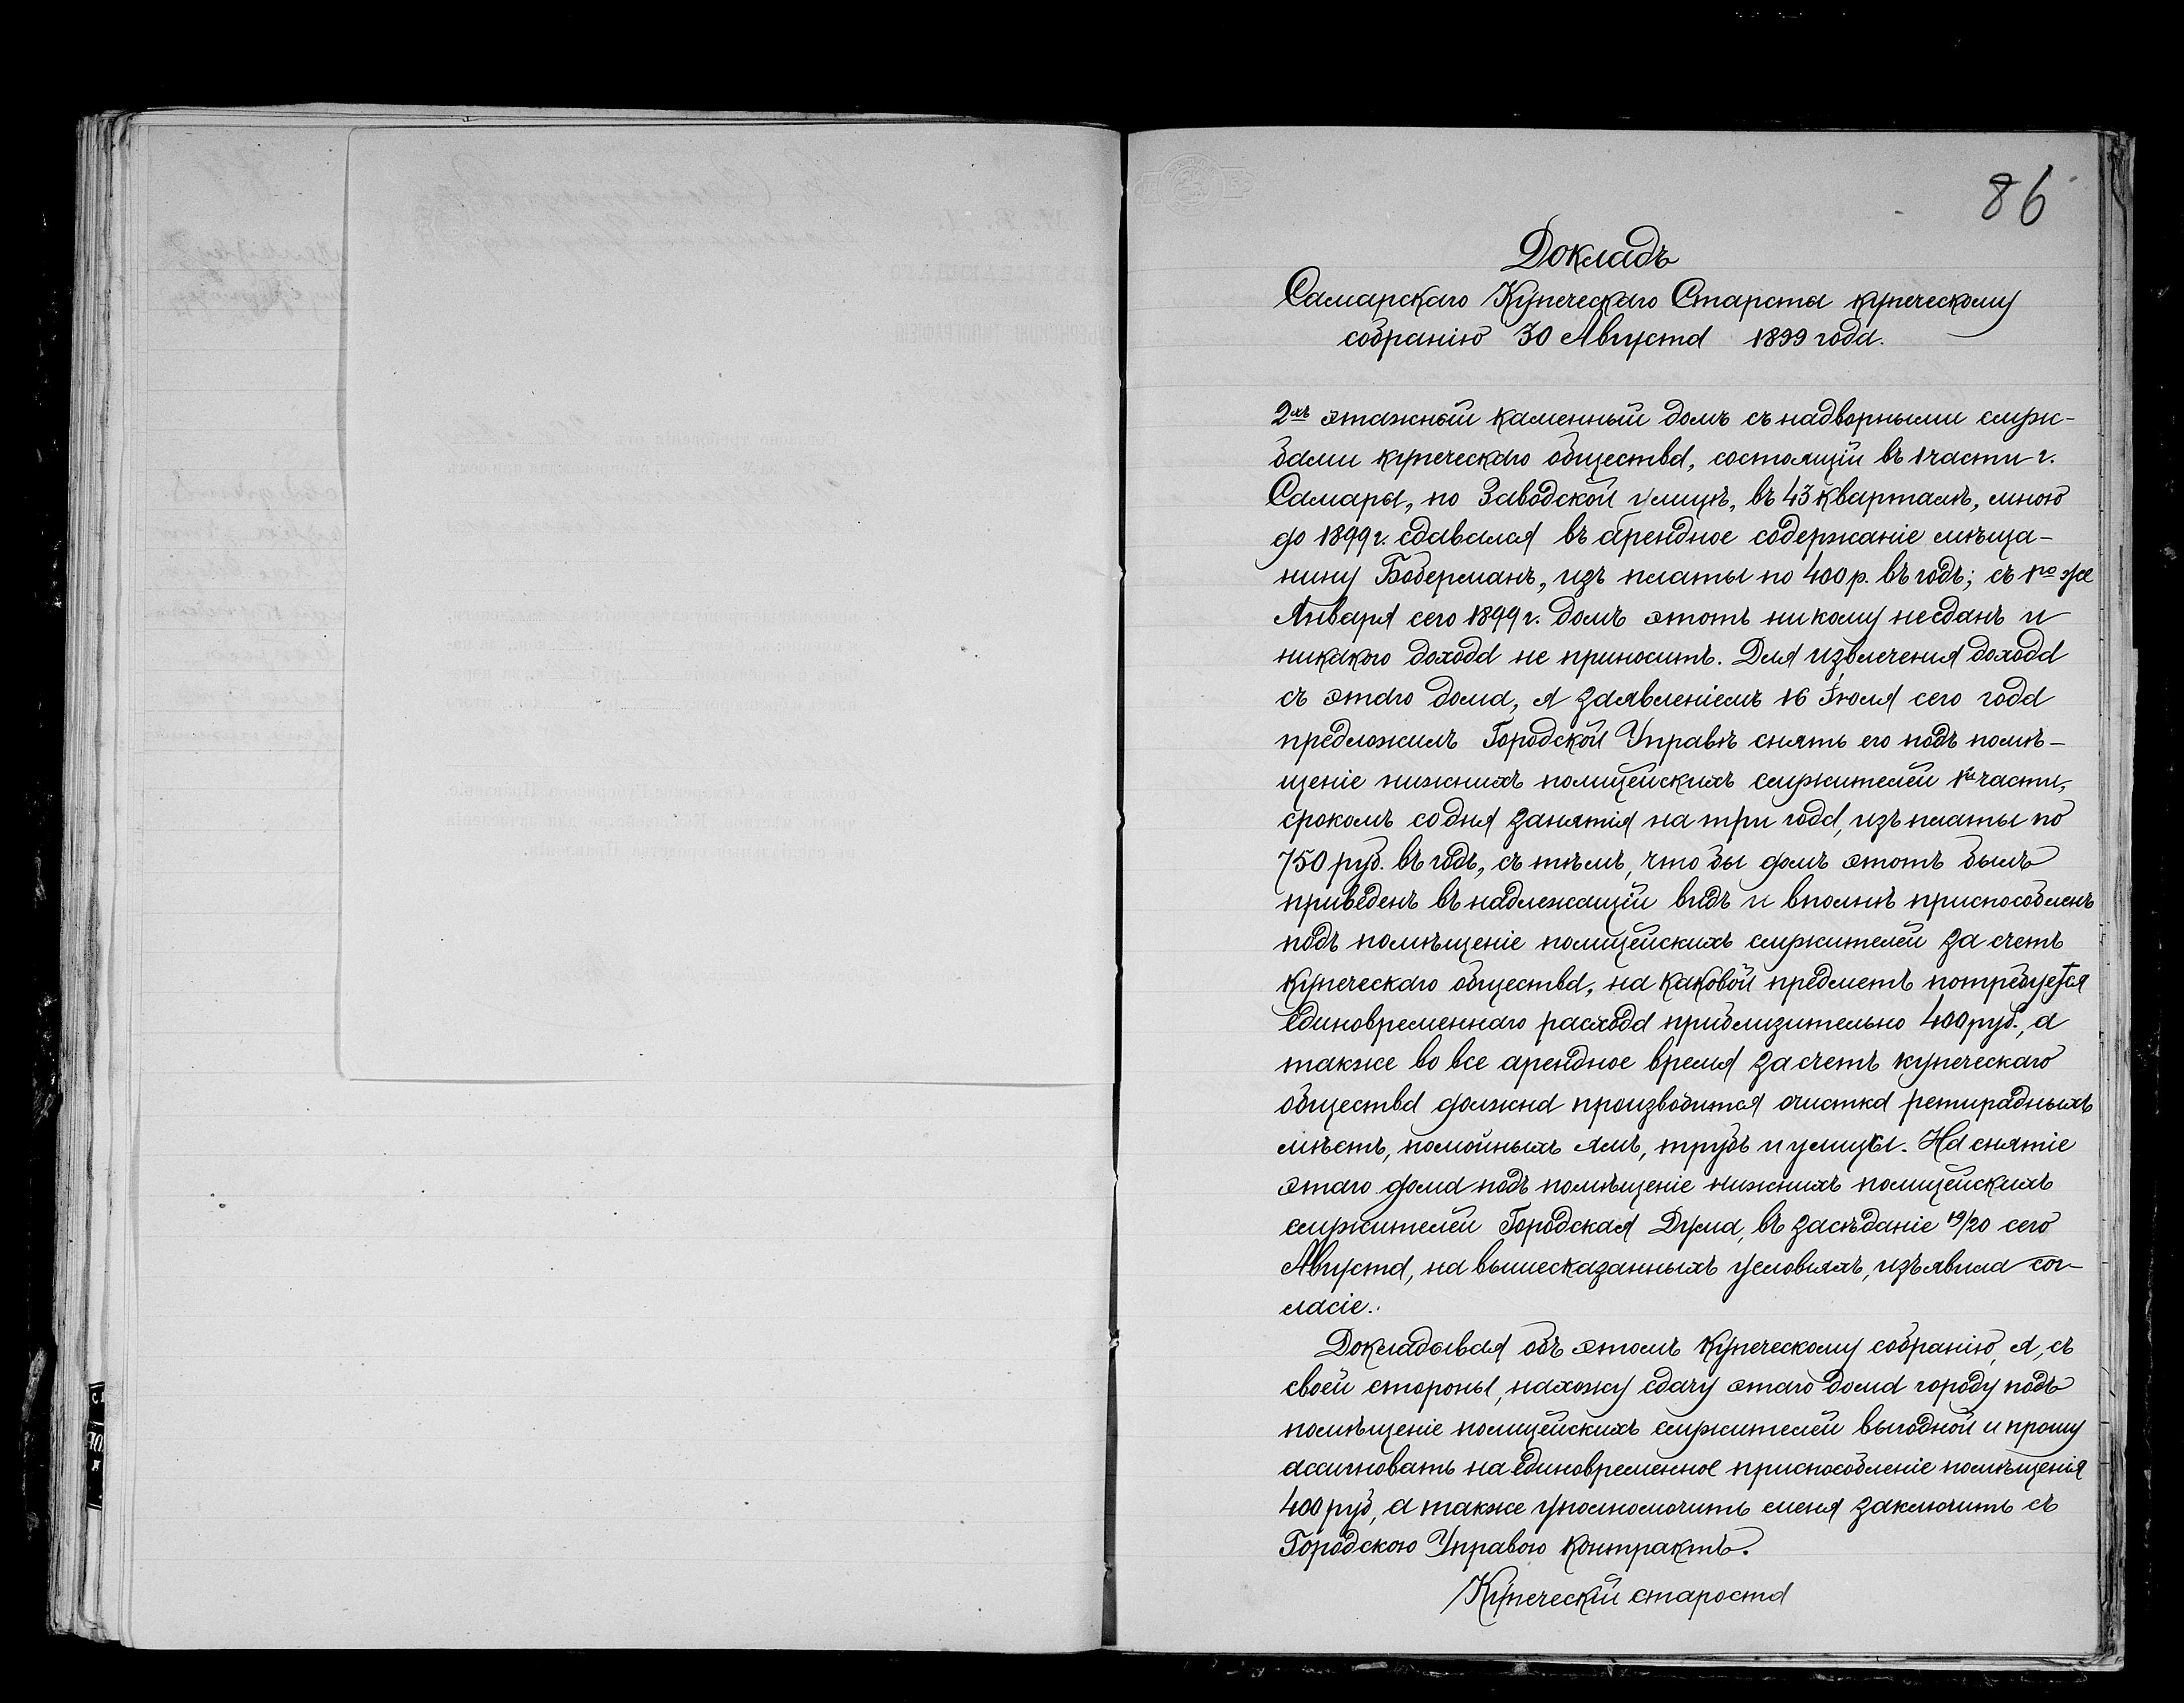 86
Докладъ
Самарскаго Купеческаго Старосты купеческому
собранію 30 Августа 1899 года.
2хъ этажный каменный домъ съ надворными служ-
бами купеческаго общества, состоящій въ 1 части г.
Самары, по Заводской улицѣ, въ 43 кварталѣ, мною
до 1899 г. сдавался въ арендное содержаніе мѣща-
нину Бодерманъ, изъ платы по 400 р. въ годъ; съ 1го же
Января сего 1899 г. домъ этотъ никому несданъ и
никакого дохода не приноситъ. Для извлеченія дохода
съ этаго дома, я заявленіемъ 16 Іюля сего года
предложилъ Городской Управѣ снять его подъ помѣ-
щеніе нижнихъ полицейскихъ служителей 1й части,
срокомъ со дня занятія на три года, изъ платы по
750 руб. въ годъ, съ тѣмъ, что бы домъ этотъ былъ
приведенъ въ надлежащій видъ и вполнѣ приспособленъ
подъ помѣщеніе полицейскихъ служителей за счетъ
купеческаго общества, на каковой предметъ потребуется
единовременнаго расхода приблизительно 400 руб., а
также во все арендное время за счетъ купеческаго
общества должна производится очистка ретирадныхъ
мѣстъ, помойныхъ ямъ, трубъ и улицы. На снятіе
этаго дома подъ помѣщеніе нижнихъ полицейскихъ
служителей Городская Дума, въ засѣданіе 19/20 сего
Августа, на вышесказанныхъ условіяхъ, изъявила сог-
ласіе.
Докладывая объ этомъ Купеческому собранію, я, съ
своей стороны, нахожу сдачу этаго дома городу подъ
помѣщеніе полицейскихъ служителей выгодной и прошу
ассигновать на единовременное приспособленіе помѣщенія
400 руб, а также уполномочить меня заключить съ
Городскою Управою контрактъ.
Купеческій староста